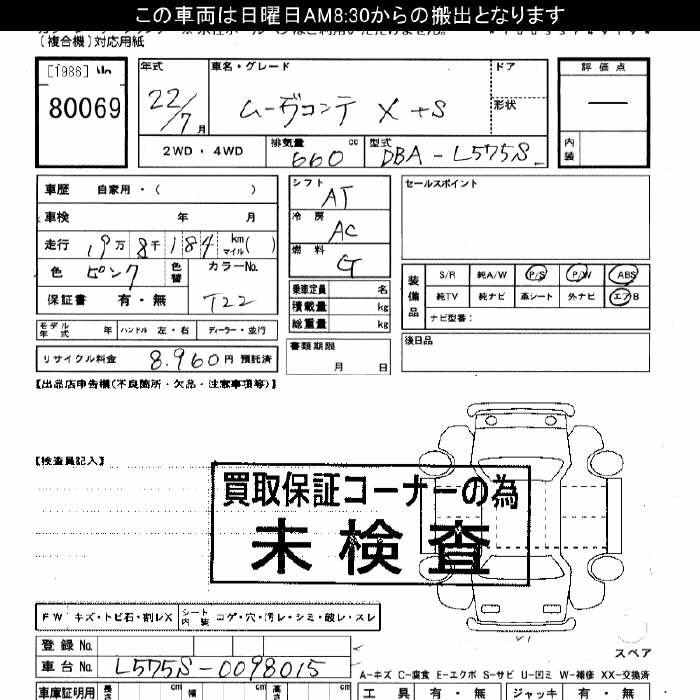 この車両は日曜日AM8:30からの搬出となります
(複合機)対応用紙
[1986]
80069
年式
22/7月
車名・グレード
ムーヴコンテ X +S
ドア
形状
評価点
内装
2WD・4WD
排気量 660 cc
型式 DBA-L575S
車歴 自家用・( )
車検 年 月
走行 19万8千184 km マイル( )
色 ピンク
色替
カラーNo. T22
保証書 有・無
シフト AT
冷房 AC
燃料 G
乗車定員 名
積載量 kg
総重量 kg
セールスポイント
装備品
S/R 純A/W P/S P/W ABS
純TV 純ナビ 革シート 外ナビ エアB
ナビ型番:
モデル年式 年 ハンドル 左・右 ディーラー・並行
リサイクル料金 8.960円 預託済
書類期限
月 日
後日品
【出品店申告欄(不良箇所・欠品・注意事項等)】
【検査員記入】
買取保証コーナーの為
未検査
FW キズ・トビ石・割レX
シート内装 コゲ・穴・汚レ・シミ・破レ・スレ
登録No.
車台No. L575S-0098015
スペア
A-キズ C-腐食 E-エクボ S-サビ U-凹ミ W-補修 XX-交換済
車庫証明用 長さ cm 幅 cm 高さ cm
工具 有・無 ジャッキ 有・無